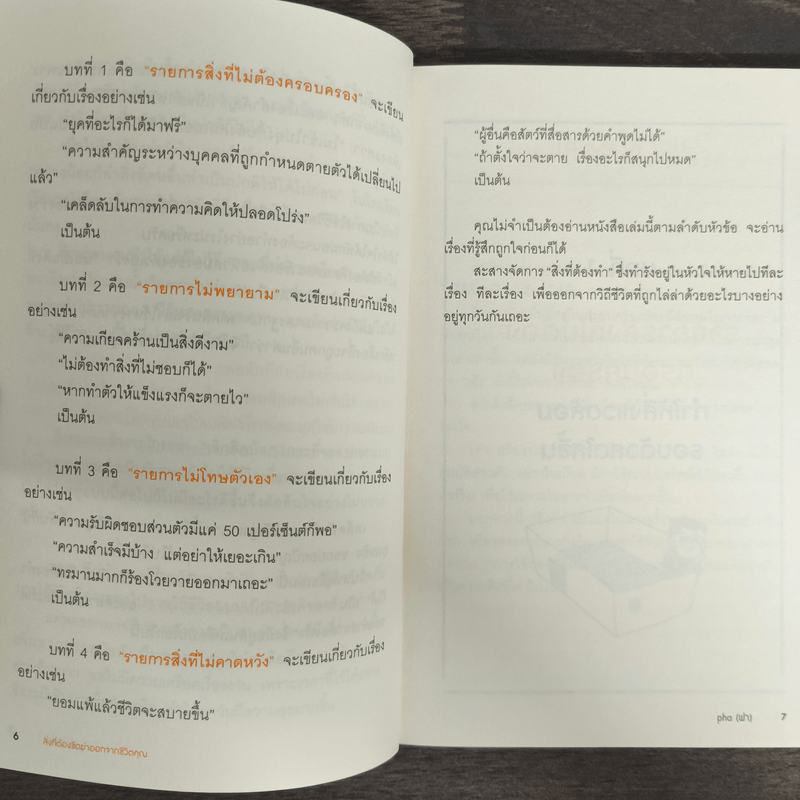 บทที่ 1 คือ “รายการสิ่งที่ไม่ต้องครอบครอง” จะเขียน
เกี่ยวกับเรื่องอย่างเช่น
“ยุคที่อะไรก็ได้มาฟรี”
“ความสำคัญระหว่างบุคคลที่ถูกกำหนดตายตัวได้เปลี่ยนไป
แล้ว”
“เคล็ดลับในการทำความคิดให้ปลอดโปร่ง”
เป็นต้น
บทที่ 2 คือ “รายการไม่พยายาม” จะเขียนเกี่ยวกับเรื่อง
อย่างเช่น
“ความเกียจคร้านเป็นสิ่งดีงาม”
“ไม่ต้องทำสิ่งที่ไม่ชอบก็ได้”
“หากทำตัวให้แข็งแรงก็จะตายไว”
เป็นต้น
บทที่ 3 คือ “รายการไม่โทษตัวเอง” จะเขียนเกี่ยวกับเรื่อง
อย่างเช่น
“ความรับผิดชอบส่วนตัวมีแค่ 50 เปอร์เซ็นต์ก็พอ”
“ความสำเร็จมีบ้าง แต่อย่าให้เยอะเกิน”
“ทรมานมากก็ร้องโวยวายออกมาเถอะ”
เป็นต้น
บทที่ 4 คือ “รายการสิ่งที่ไม่คาดหวัง” จะเขียนเกี่ยวกับเรื่อง
อย่างเช่น
“ยอมแพ้แล้วชีวิตจะสบายขึ้น”
6 สิ่งที่ต้องขีดฆ่าออกจากชีวิตคุณ
“ผู้อื่นคือสัตว์ที่สื่อสารด้วยคำพูดไม่ได้”
“ถ้าตั้งใจว่าจะตาย เรื่องอะไรก็สนุกไปหมด”
เป็นต้น
คุณไม่จำเป็นต้องอ่านหนังสือเล่มนี้ตามลำดับหัวข้อ จะอ่าน
เรื่องที่รู้สึกถูกใจก่อนก็ได้
สะสางจัดการ “สิ่งที่ต้องทำ” ซึ่งทำรังอยู่ในหัวใจให้หายไปทีละ
เรื่อง ทีละเรื่อง เพื่อออกจากวิถีชีวิตที่ถูกไล่ล่าด้วยอะไรบางอย่าง
อยู่ทุกวันกันเถอะ
pha (ฟา) 7